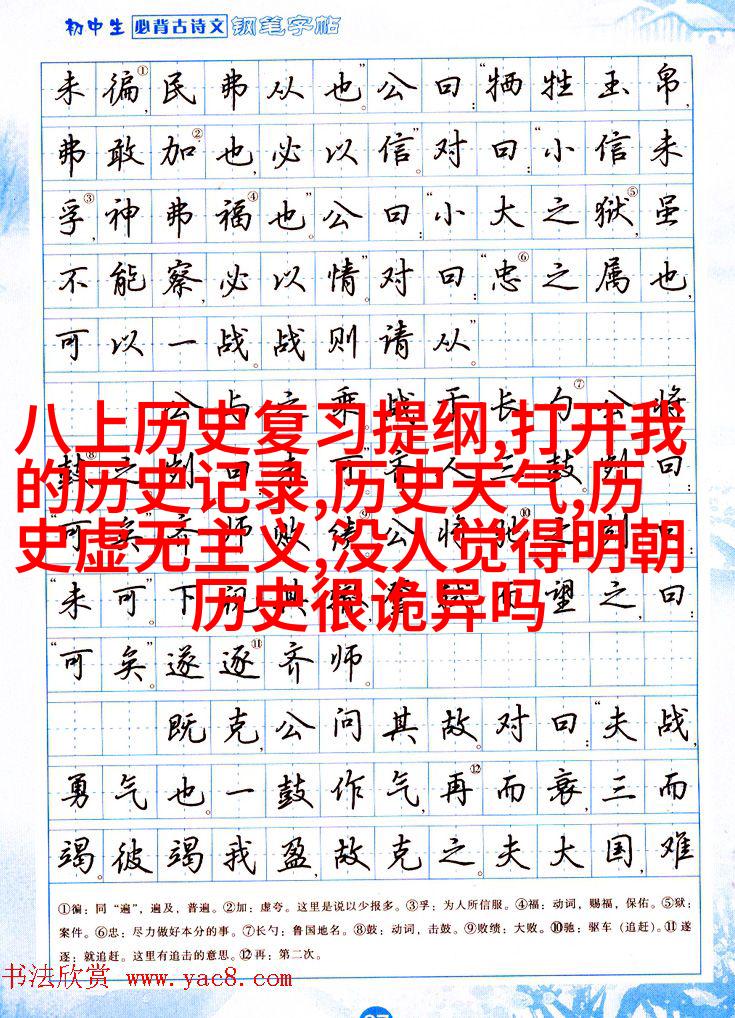 初中生 必背古诗文 钢笔字帖
未徧①，民弗从也”。公曰：“牺牲玉帛，
弗敢加②也，必以信”。对曰：“小信未
孚③，神弗福④也”。公曰：“小大之狱⑤，虽
不能察，必以情”。对曰：“忠⑥之属也，
可以一战。战则请从”。
公与之乘。战于长勺⑦。公将
八上历史复习提纲,打开我
鼓⑧之。刿曰：“未可”。齐人三鼓。刿曰：
的历史记录,历史天气,历
“可矣”。齐师败绩。公将驰⑩之。刿曰：
史虚无主义,没人觉得明朝
“未可”。下视其 而望之，曰：
历史很诡异吗
“可矣”。遂逐⑪齐师。
既克，公问其故。对曰：“夫战，
勇气也。一鼓作气，再⑫而衰，三而
竭。彼竭我盈，故克之。夫大国，难
①徧：同“遍”，遍及，普遍。②加：虚夸。这里是说以少报多。③孚：为人所信服。④福：动词，赐福，保佑。⑤狱：
案件。⑥忠：尽力做好本分的事。⑦长勺：鲁国地名。⑧鼓：动词，击鼓。⑨败绩：大败。⑩驰：驱车（追赶）。⑪遂
逐：就追赶。这里有追击的意思。⑫再：第二次。
书法欣赏 www.yac8.com